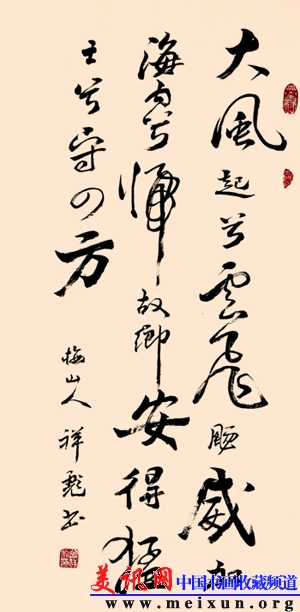 大風起兮雲飛颺威加
海内兮歸故鄉安得猛
士兮守四方
梅山人祥彪书
美讯网 中国书画收藏频道
www.meixun.org